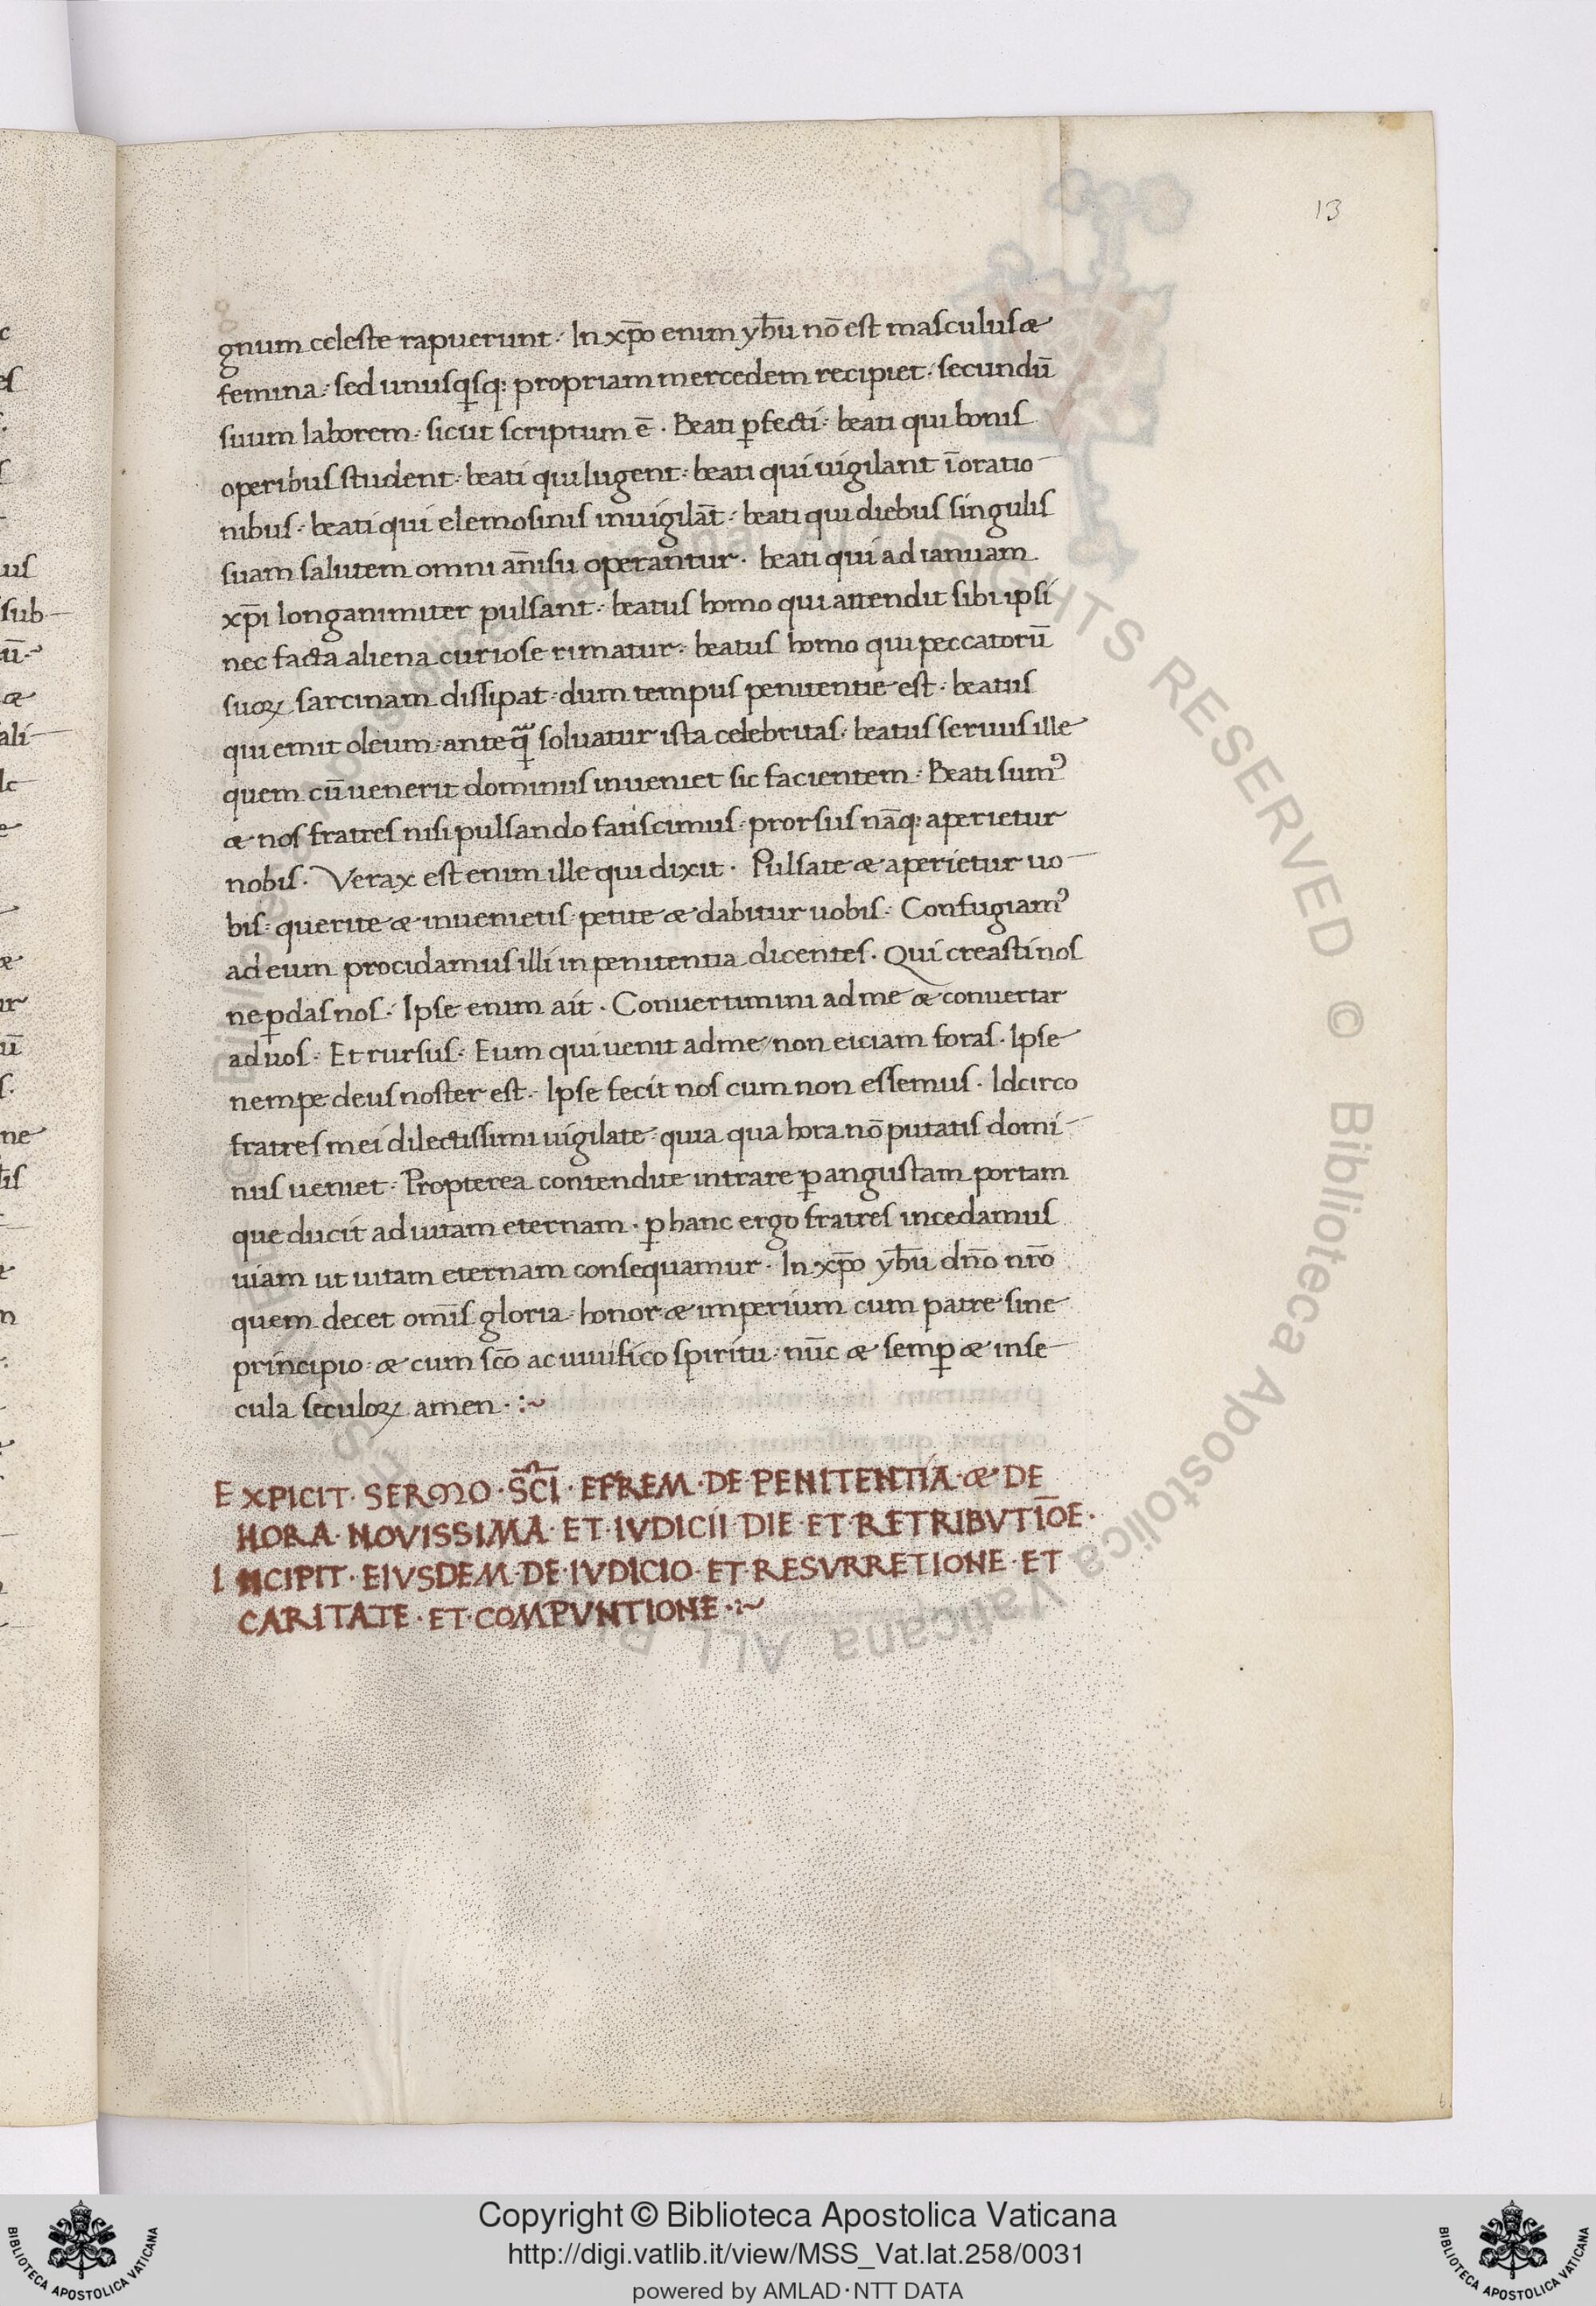 13
gnum celeste rapuerunt · In xp̄o enim yh̄u nō est masculus æ
femina · sed unusq̱sq; propriam mercedem recipiet · secundū
suum laborem · sicut scriptum ē · Beati ꝑfecti · beati qui bonis
operibus student · beati qui lugent · beati qui uigilant ī oratio
nibus · beati qui elemosinis inuigilāt · beati qui diebus singulis
suam salutem omni an̄isu operantur · beati qui ad ianuam
xp̄i longanimiter pulsant · beatus homo qui attendit sibi ipsi
nec facta aliena curiose rimatur · beatus homo qui peccatorū
suoꝝ sarcinam dissipat · dum tempus penitentie est · beatus
qui emit oleum · ante q̄ soluatur ista celebritas · beatus seruus ille
quem cū uenerit dominus inueniet sic facientem · Beati sumꝰ
æ nos fratres nisi pulsando fatiscimus · prorsus nāq; aperietur
nobis · Verax est enim ille qui dixit · Pulsate æ aperietur uo
bis · querite æ inuenietis · petite æ dabitur uobis · Confugiamꝰ
ad eum procidamus illi in penitentia dicentes · Qui creasti nos
ne ꝑdas nos · Ipse enim ait · Conuertimini ad me æ conuertar
ad uos · Et rursus · Eum qui uenit ad me / non eiciam foras · Ipse
nempe deus noster est · Ipse fecit nos cum non essemus · Idcirco
fratres mei dilectissimi uigilate · quia qua hora nō putatis domi
nus ueniet · Propterea contendite intrare ꝑ angustam portam
que ducit ad uitam eternam · ꝑ hanc ergo fratres incedamus
uiam ut uitam eternam consequamur · In xp̄o yh̄u dn̄o nr̄o
quem decet omīs gloria · honor æ imperium cum patre sine
principio · æ cum sc̄o ac uiuifico spiritu · nūc æ semꝑ æ in se
cula seculoꝝ amen · :~
EXPICIT · SERMO · SC̄I · EFREM · DE PENITENTIA · æ · DE
HORA · NOVISSIMA · ET · IVDICII · DIE · ET · RETRIBVTIŌE ·
INCIPIT · EIVSDEM · DE · IVDICIO · ET · RESVRRETIONE · ET
CARITATE · ET · COMPVNTIONE · :~
Copyright © Biblioteca Apostolica Vaticana
http://digi.vatlib.it/view/MSS_Vat.lat.258/0031
powered by AMLAD·NTT DATA